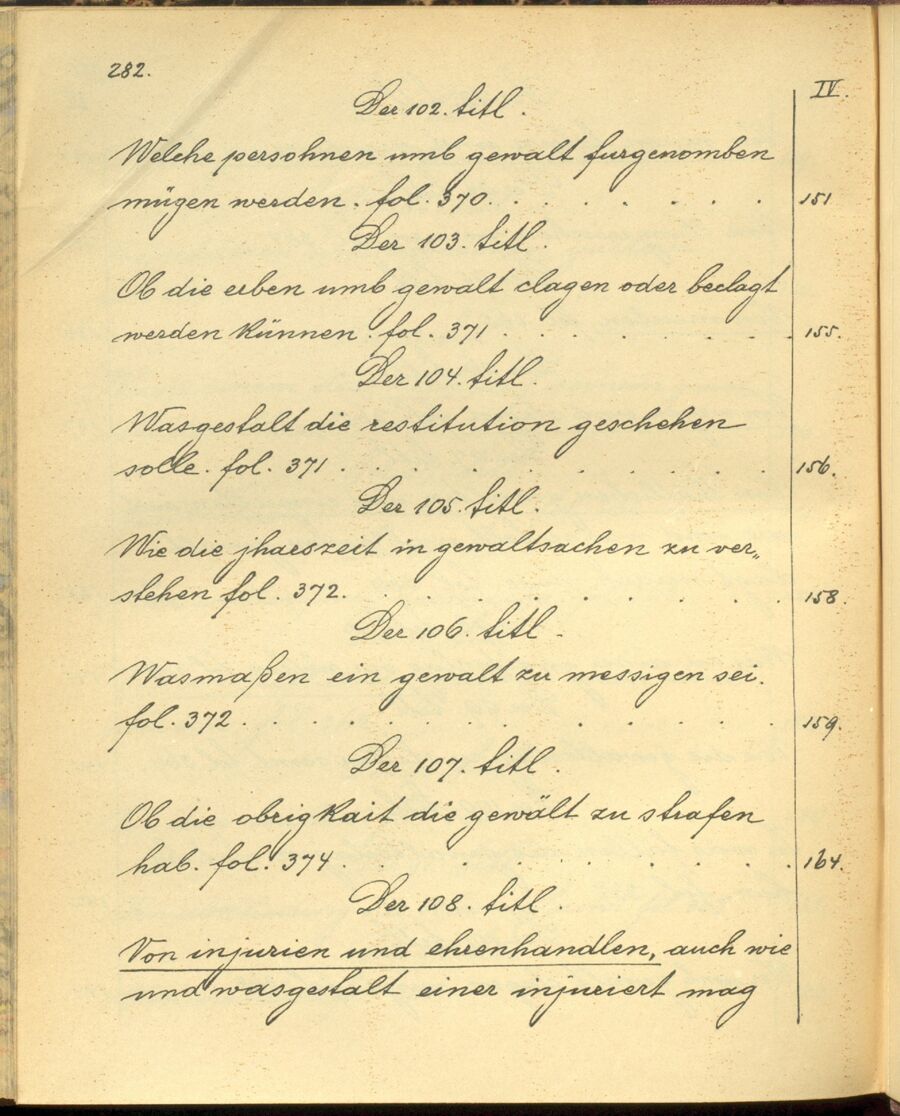 282.
IV.
Der 102. titl.
Welche persohnen umb gewalt furgenomben
mügen werden. fol. 370. . . . . . . . 151
Der 103. titl.
Ob die erben umb gewalt clagen oder beclagt
werden künnen. fol. 371 . . . . . . . 155.
Der 104. titl.
Wasgestalt die restitution geschehen
solle. fol. 371 . . . . . . . . . . 156.
Der 105. titl.
Wie die jharszeit in gewaltsachen zu ver„
stehen fol. 372. . . . . . . . . . 158
Der 106. titl.
Wasmaßen ein gewalt zu messigen sei.
fol. 372 . . . . . . . . . . . . 159.
Der 107. titl.
Ob die obrigkait die gewält zu strafen
hab. fol. 374 . . . . . . . . . 164.
Der 108. titl.
Von injurien und ehrenhandlen, auch wie
und wasgestalt einer injuriert mag